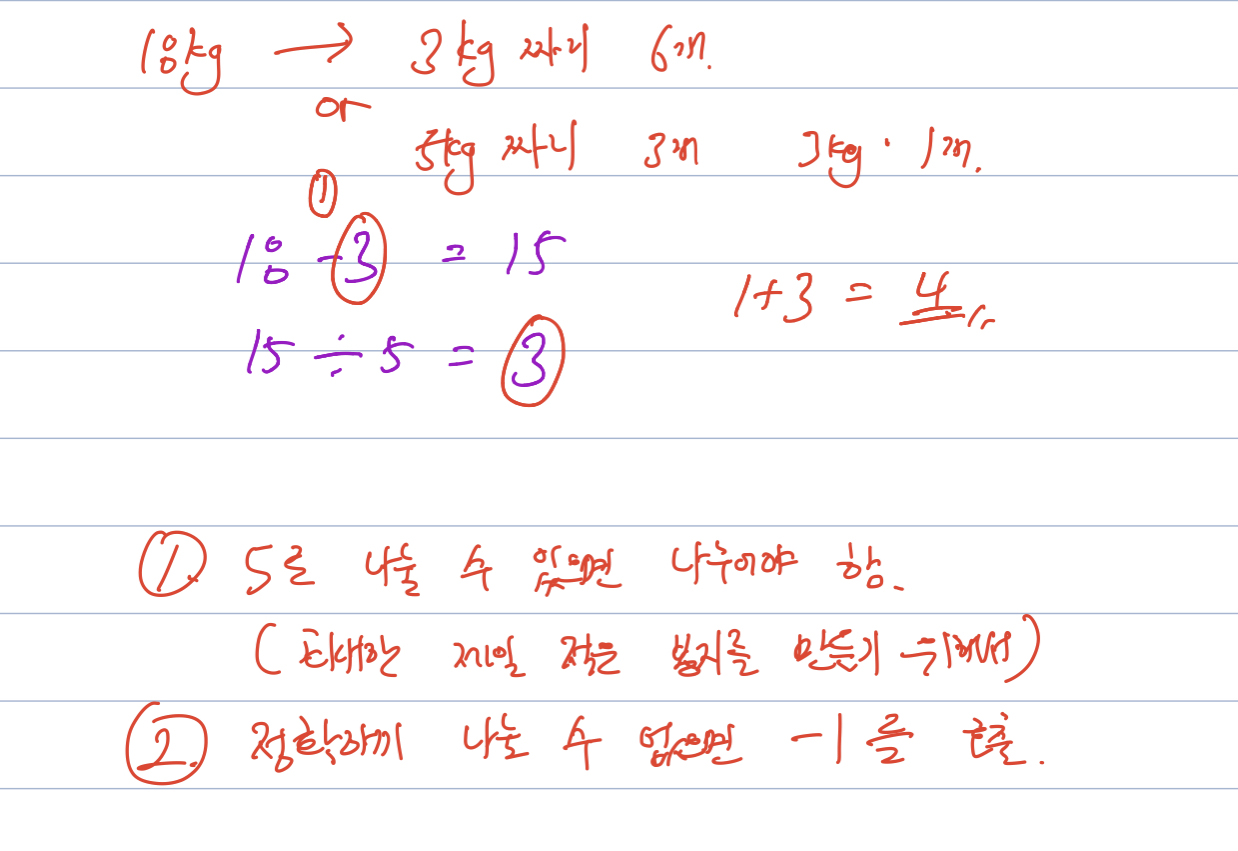 18kg → 3kg 짜리 6개.
or
5kg 짜리 3개 3kg · 1개.
①
18 - 3 = 15
1+3 = 4
15 ÷ 5 = 3
①. 5로 나눌 수 있으면 나누어야 함.
(최대한 제일 적은 봉지를 만들기 위해서)
②. 정확하게 나눌 수 없으면 -1를 출출.